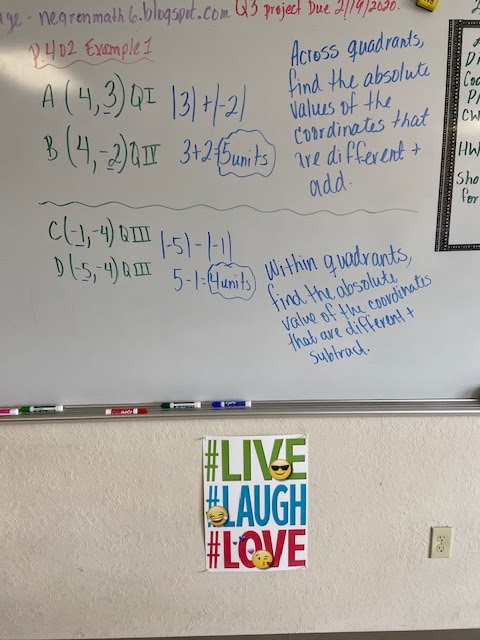 age - negronmath6.blogspot.com Q3 project Due 2/19/2020.
p.402 Example 1
A (4,3) QI |3| + |-2|
B (4,-2) QIV 3+2=5units
Across quadrants,
find the absolute
values of the
coordinates that
are different +
add.
C(-1,-4) QIII |-5| - |-1|
D(-5,-4) QIII 5-1=4units
Within quadrants,
find the absolute
value of the coordinates
that are different +
subtract.
Di
Coo
P
CW
HW
Sho
for
#LIVE
#LAUGH
#LOVE